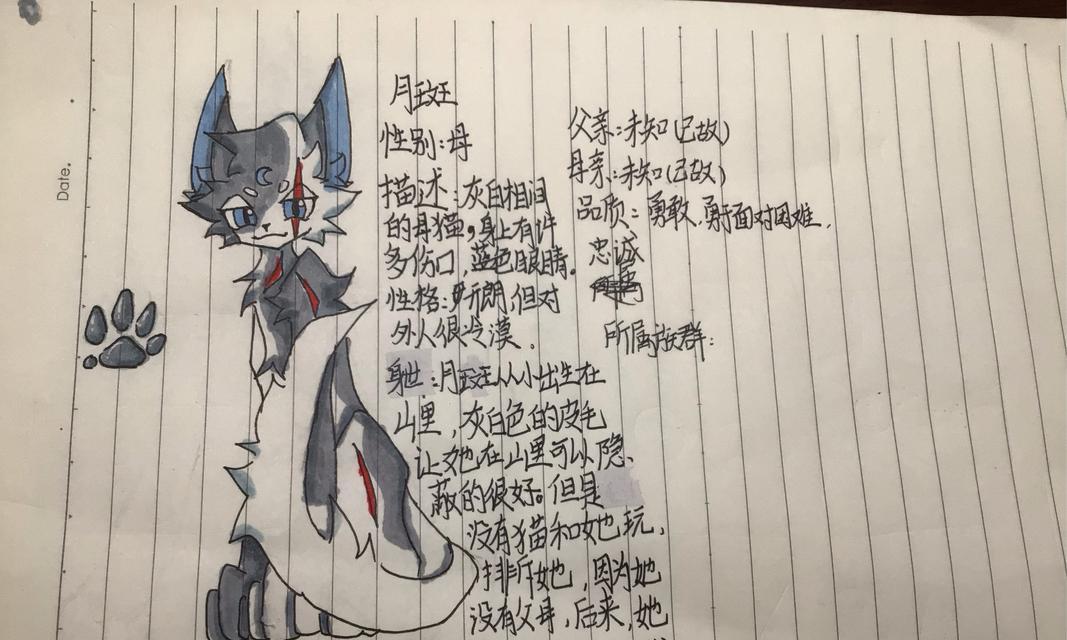 Date.
月斑
性别:母
描述:灰白相间
的母猫,身上有许
多伤口,蓝色眼睛.
性格:开朗,但对
外人很冷漠.
身世:月斑从小出生在
山里,灰白色的皮毛
让她在山里可以隐
蔽的很好。但是
没有猫和她玩,
排斥她,因为她
没有父母,后来,她
父亲:未知(已故)
母亲:未知(已故)
品质:勇敢.勇于面对困难.
忠诚
所属族群: